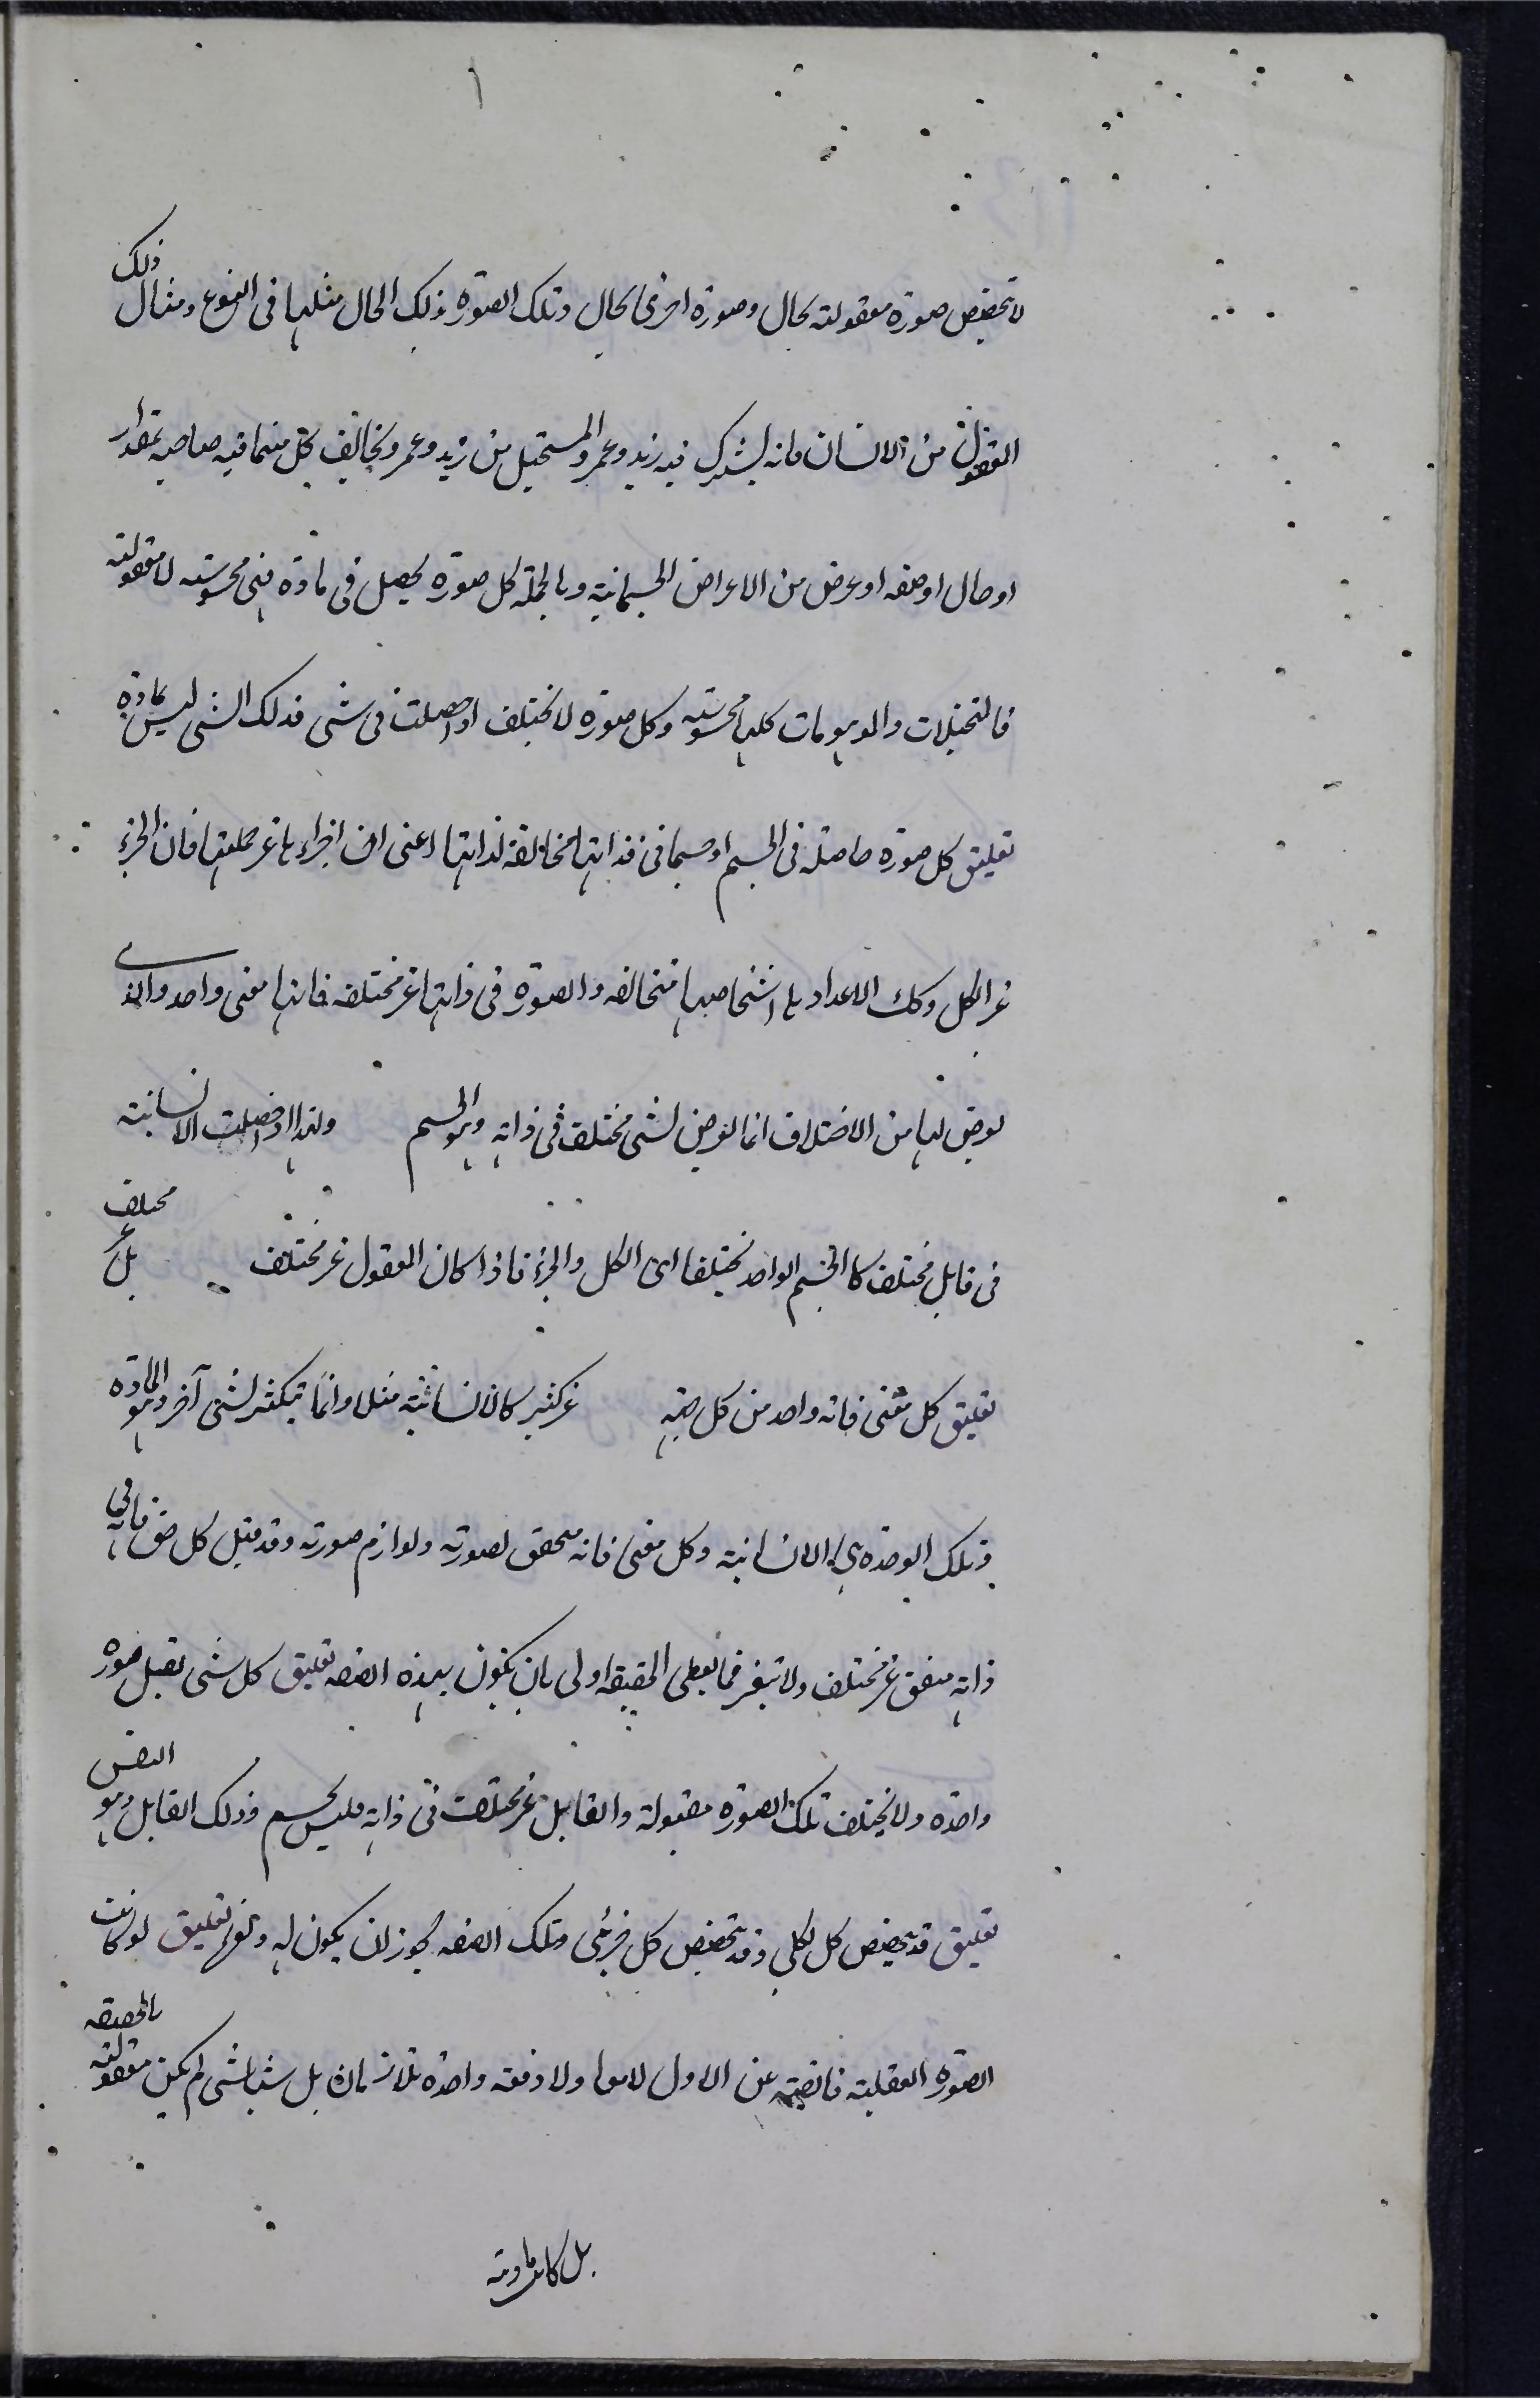 ١
لا تخصيص صورة معقولة بحال وصورة اخرى بحال وتلك الصورة وذلك الحال مثلها فى النوع ومثال ذلك
المعقول من الانسان فانه يشترك فيه زيد وعمرو المستحيل من زيد وعمرو يخالف كل منهما فيه صاحبه بمقدار
او حال او صفه او عرض من الاعراض الجسمانية وبالجملة كل صورة يحصل فى مادة فهى محسوسة لا معقولة
فالتخيلات والموهومات كلها محسوسة وكل صورة لا يختلف اذا حصلت فى شى فذلك الشى ليس بمادة
تعليق كل صورة حاصلة فى الجسم او جسمانى فذاتها مخالفة لذاتها اعنى ان اجزاءها غر كليتها فان الجزء
غر الكل وكك الاعداد با اشخاصها متخالفه والصورة فى ذاتها غر مختلفه فانها معنى واحد والذى
يعرض لها من الاختلاف انما يعرض لشى مختلف فى ذاته وهو الجسم ولهذا اذا حصلت الانسانية
فى قابل مختلف كالجسم الواحد تختلفا اى الكل والجزء فاذا كان المعقول غر مختلف بل غر مختلف
تعليق كل معنى فانه واحد من كل جهة غر كثير كالانسانية مثلا وانما يتكثر لشى آخر وهو المادة
وتلك الوحدة هى الانسانية وكل معنى فانه متحقق لصورته ولوازم صورته وقد قيل كل حق فانه فى
ذاته متفق غر مختلف ولا تيغر فما يعطى الحقيقة اولى بان يكون بهذه الصفه تعليق كل شى يقبل صورة
واحدة ولا يختلف تلك الصورة مقبولة والقابل غر مختلف فى ذاته فليس بجسم وذلك القابل وهو النفس
تعليق قد يخصص كل لكلى وقد يتخصص كل جزئى وتلك الصفه يجوز ان يكون له ولغره تعليق لو كانت
الصورة العقلية فائضة عن الاول لا معا ولا دفعة واحدة بلا زمان بل شيئا لشى لم يكن معقولة بالحقيقه
بل كانت مادية